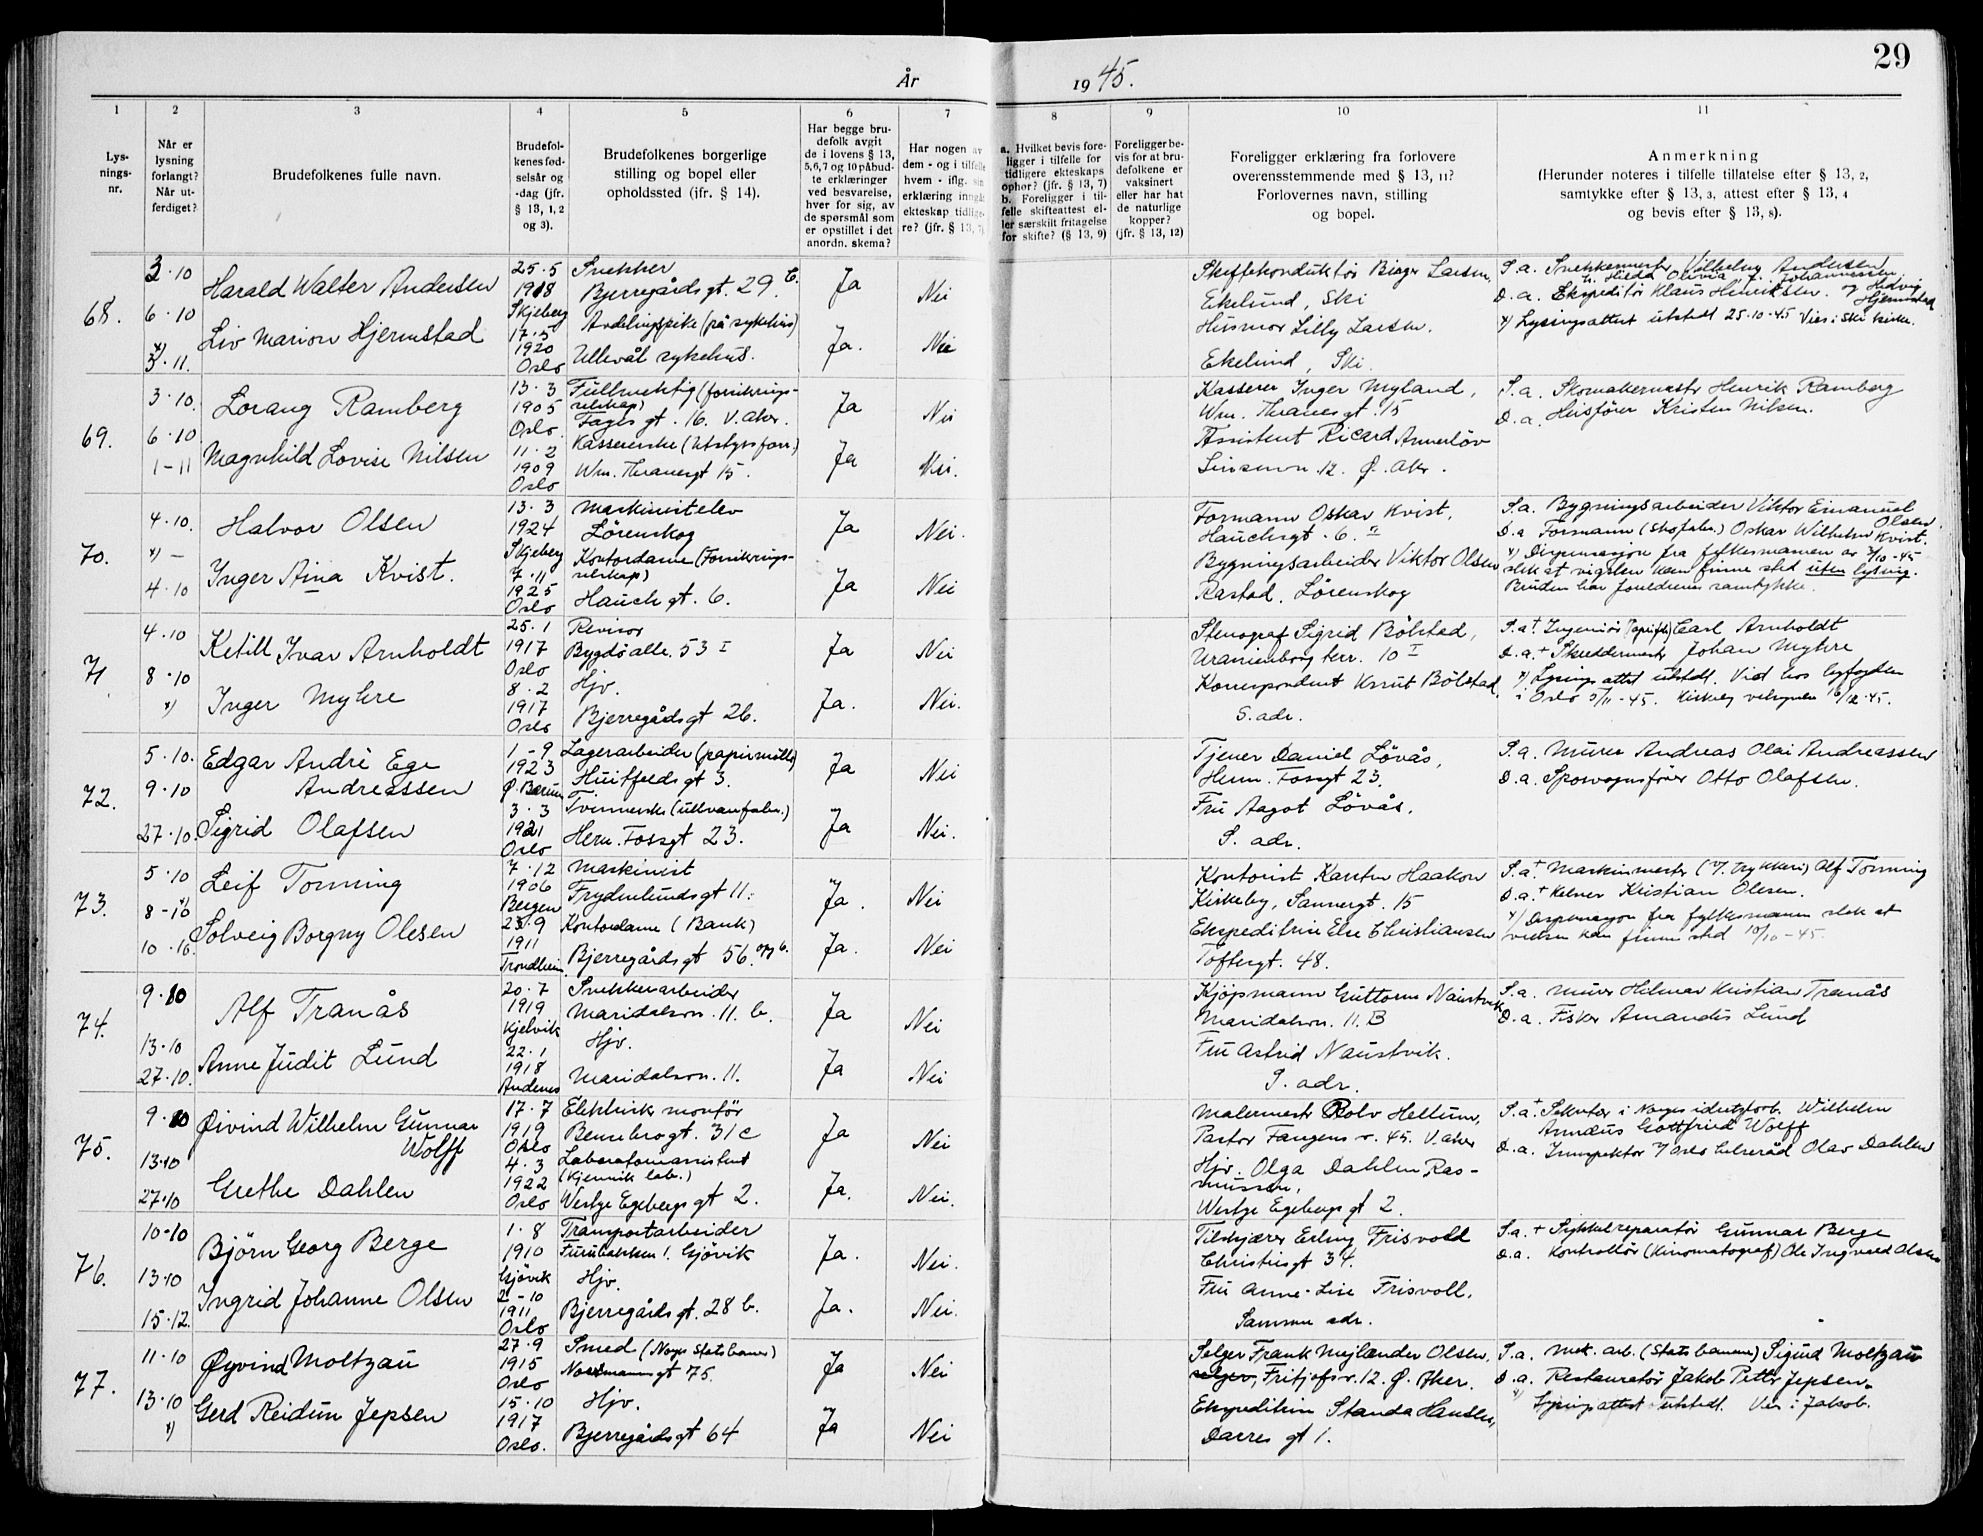 29
År 1945.
1 2 3 4 5 6 7 8 9 10 11
Lysningsnr.
Når er lysning forlangt? Når utferdiget?
Brudefolkenes fulle navn.
Brudefolkenes fødselsår og -dag (jfr. § 13, 1, 2 og 3).
Brudefolkenes borgerlige stilling og bopel eller opholdssted (jfr. § 14).
Har begge brudefolk avgit de i lovens § 13, 5, 6, 7 og 10 påbudte erklæringer ved besvarelse, hver for sig, av de spørsmål som er opstillet i det anordn. skema?
Har nogen av dem - og i tilfelle hvem - iflg. sin erklæring inngått ekteskap tidligere? (jfr. § 13, 7)
a. Hvilket bevis foreligger i tilfelle for tidligere ekteskaps ophør? (jfr. § 13, 7) b. Foreligger i tilfelle skifteattest eller særskilt fritagelse for skifte? (§ 13, 9)
Foreligger bevis for at brudefolkene er vaksinert eller har hat de naturlige kopper? (jfr. § 13, 12)
Foreligger erklæring fra forlovere overensstemmende med § 13, 11? Forlovernes navn, stilling og bopel.
Anmerkning (Herunder noteres i tilfelle tillatelse efter § 13, 2, samtykke efter § 13, 3, attest efter § 13, 4 og bevis efter § 13, 8).
68.
3.10
6.10
x) 3.11.
Harald Walter Andersen
Liv Marion Hjermstad
25.5 1918 Skjeberg
17.5 1920 Oslo
Snekker
Bjerregårds gt. 29 b.
Avdelingspike (på sykehus)
Ullevål sykehus.
Ja Nei
Ja. Nei
Skiftekonduktör Birger Larsen,
Ekelund, Ski
Husmor Lilly Larsen.
Ekelund, Ski.
S.a. Snekkermester Vilhelm Andersen
h. Hilda Olivia f. Johannessen
D.a. Ekspeditör Klaus Henriksen og Hedvig Hjermstad
x) Lysingsattest utstedt 25.10-45 Vies i Ski kirke.
69.
3.10.
6.10
1-11
Lorang Ramberg
Magnhild Lovise Nilsen
13.3 1905 Oslo
11.2 1909 Oslo
Fullmektig (forsikringsselskap)
Fagis gt. 16. V. Aker.
Kassererske (Utstyrsforr.)
Wm. Thranesgt 15.
Ja Nei
Ja Nei.
Kasserer Inger Myland,
Wm. Thranes gt. 15
Assistent Ricard Annerlöv
12. Ø. Aker.
S.a. Skomakermester Henrik Ramberg
D.a. Heisförer Kristen Nilsen.
70.
4.10.
x) -
4.10
Halvor Olsen
Inger Aina Kvist.
13.3 1924 Skjeberg
7.11 1925 Oslo
Maskinistelev
Lörenskog
Kontordame (Forsikringsselskap)
Hauch gt. 6.
Ja Nei.
Ja Nei
Formann Oskar Kvist,
Hauchsgt. 6. II
Bygningsarbeider Viktor Olsen
Rastad, Lörenskog
S.a. Bygningsarbeider Viktor Emanuel Olsen
D.a Formann (Skofabr.) Oskar Wilhelm Kvist.
x) Dispensasjon fra fylkesmannen av 4/10-45
slik at vigslen kan finne sted uten lysing.
Bruden har foreldrenes samtykke.
71
4.10
8.10
x)
Ketill Ivar Arnholdt
Inger Myhre
25.1 1917 Oslo
8.2 1917 Oslo
Revisor
Bygdö alle. 53 I
Hjv.
Bjerregårds gt 26.
Ja Nei
Ja. Nei.
Stenograf Sigrid Bölstad,
Uranienborg terr. 10 I
Korrespondent Knut Bölstad
S. adr.
S.a.† Ingeniör Carl Arnholdt
D.a.† Skreddermester Johan Myhre
x) Lysingsattest utstedt. Vid hos byfogden
i Oslo 5/11-45. Kirkelig velsignelse 16/12-45.
72.
5.10.
9.10
27.10.
Edgar André Ege
Andreassen
Sigrid Olafsen
1-9 1923 Ø. Bærum
3.3 1921 Oslo
Lagerarbeider (papirmölle)
Huitfelds gt 3.
Tvinnerske (ullvarefabr.)
Herm. Fossgt 23.
Ja Nei
Ja Nei.
Tjener Daniel Lövås,
Herm. Fossgt 23.
Fru Aagot Lövås.
S. adr.
S.a. Murer Andreas Olai Andreassen
D.a. Sporvognsförer Otto Olafsen.
73.
5.10
8-10 x)
10.10.
Leif Torning
Solveig Borgny Olesen
7.12 1906 Bergen
23.9 1911 Trondheim
Maskinist
Frydenlunds gt 11.
Kontordame (Bank)
Bjerregårds gt 56. opg 6.
Ja. Nei
Ja. Nei
Kontorist Karsten Haakon
Kirkeby, Sannergt. 15
Ekspeditrise Else Christiansen
Toftesgt. 48.
S.a† Maskinmester (v. trykkeri) Alf Torning
D.a.† Kelner Kristian Olesen.
x) Dispensasjon fra fylkesmannen slik at
vielsen kan finne sted 10/10-45.
74.
9.10
13.10
27.10.
Alf Tranås
Anne Judit Lund
20.7 1919 Kjelvik
22.1 1918 Andenes
Snekkerarbeider
Maridalsvn. 11. b.
Hjv.
Maridalsvn. 11.
Ja Nei
Ja Nei
Kjöpmann Guttorm Naustvik
Maridalsvn. 11. B
Fru Astrid Naustvik.
S. adr.
S.a. Murer Hilmar Kristian Tranås
D.a. Fisker Amandus Lund
75.
9.10
13.10
27.10
Øivind Wilhelm Gunnar
Wolff
Grethe Dahlen
17.7 1919 Oslo
4.3 1922 Oslo
Elektrisk montör
Bennebrogt. 31 c
Laboratorieassistent
(Kjemisk lab.)
Vestye Egebergs gt 2.
Ja Nei
Ja. Nei.
Malermester Rolv Hellum,
Pastor Fangens v. 45. V. Aker
Hjv. Olga Dahlen Rasmussen,
Vestye Egebergs gt 2.
S.a.† Sekretær i Norges idrettsforb. Wilhelm
Annæus Gottfried Wolff
D.a. Inspektör v/ Oslo helseråd Olav Dahlen
76.
10-10
13.10
15.12.
Björn Georg Berge
Ingrid Johanne Olsen
1.8 1910 Gjövik
2-10 1911 Oslo
Transportarbeider
Furubakken 1. Gjövik
Hjv.
Bjerregårds gt. 28 b.
Ja. Nei.
Ja. Nei.
Tilskjærer Erling Frisvold
Christies gt 34.
Fru Anne-Lise Frisvoll.
Samme adr.
S.a.† Sykkelreparatör Gunnar Berge
D.a. Kontrollör (Kinematograf) Ole Ingvald Olsen
77.
11.10
13.10
x)
Øyvind Moltzau
Gerd Reidun Jepsen
27.9 1915 Oslo
15.10 1917 Oslo.
Smed (Norges Statsbaner)
Normanns gt 75.
Hjv.
Bjerregårds gt 64
Ja Nei
Ja Nei
Selger Frank Mejlænder Olsen,
selger, Fritjofs v. 12. Ø. Aker.
Ekspeditrise Standa Hansen,
Darres gt 1.
S.a. Mek. arb. (Statsbanene) Sigurd Moltzau
D.a. Restauratör Jakob Petter Jepsen.
x) Lysingsattest utstedt. Vies i Jakob.